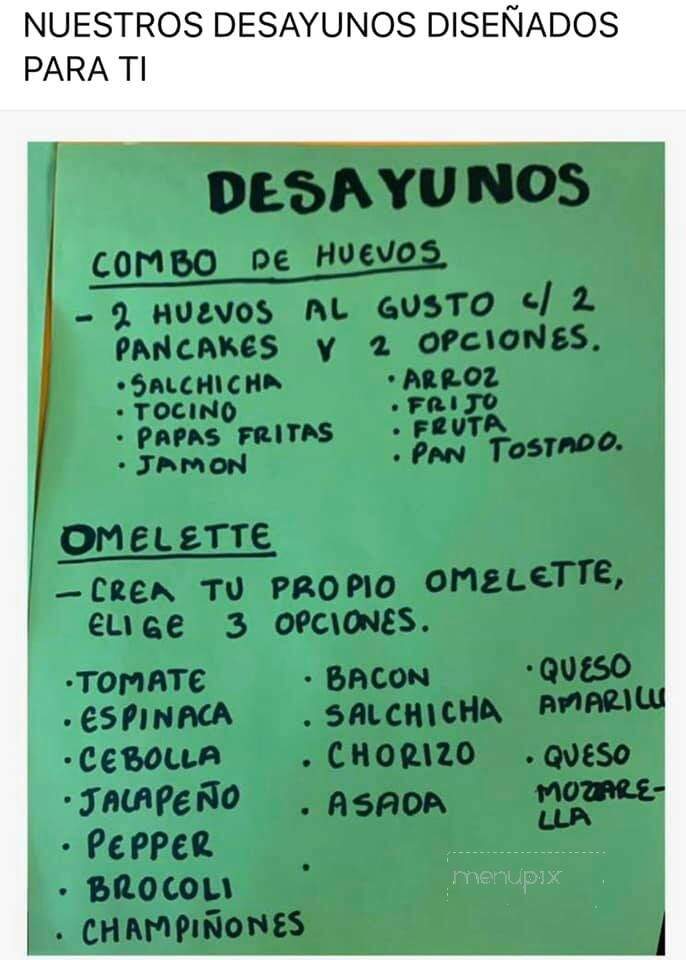 NUESTROS DESAYUNOS DISEÑADOS
PARA TI
DESAYUNOS
COMBO DE HUEVOS
- 2 HUEVOS AL GUSTO c/ 2
PANCAKES Y 2 OPCIONES.
• SALCHICHA
• TOCINO
• PAPAS FRITAS
• JAMON
• ARROZ
• FRIJO
• FRUTA
• PAN TOSTADO.
OMELETTE
- CREA TU PROPIO OMELETTE,
ELIGE 3 OPCIONES.
• TOMATE
• ESPINACA
• CEBOLLA
• JALAPEÑO
• PEPPER
• BROCOLI
• CHAMPIÑONES
• BACON
• SALCHICHA
• CHORIZO
• ASADA
•
• QUESO
AMARILLO
• QUESO
MOZARE-
LLA
menupix